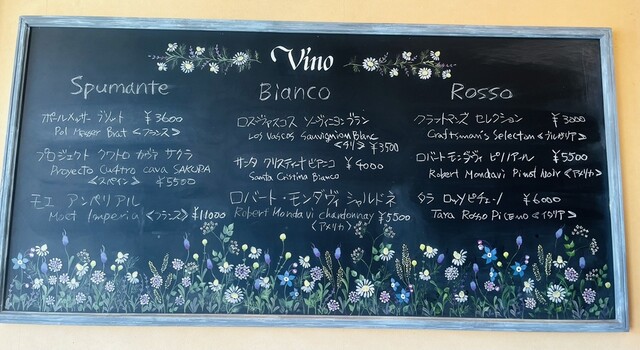 Vino
Spumante
ポールメッサー ブリュット ¥3600
Pol Messer Brut <フランス>
プロジェクト クワトロ カヴァ サクラ
Proyecto Cu4tro cava SAKURA
<スペイン> ¥5500
モエ アンペリアル
Moët Imperial <フランス> ¥11000
Bianco
ロスヴァスコス ソーヴィニヨンブラン
Los Vascos Sauvignion Blanc
<チリ> ¥3500
サンタ クリスティーナ ビアンコ ¥4000
Santa Cristina Bianco
ロバート・モンダヴィ シャルドネ
Robert Mondavi chardonnay ¥5500
<アメリカ>
Rosso
クラフトマンズ セレクション ¥3000
Craftsman's Selection <ブルガリア>
ロバートモンダヴィ ピノノアール ¥5500
Robert Mondavi Pinot Noir <アメリカ>
タラ ロッソピチェーノ ¥6000
Tara Rosso Piceno <イタリア>